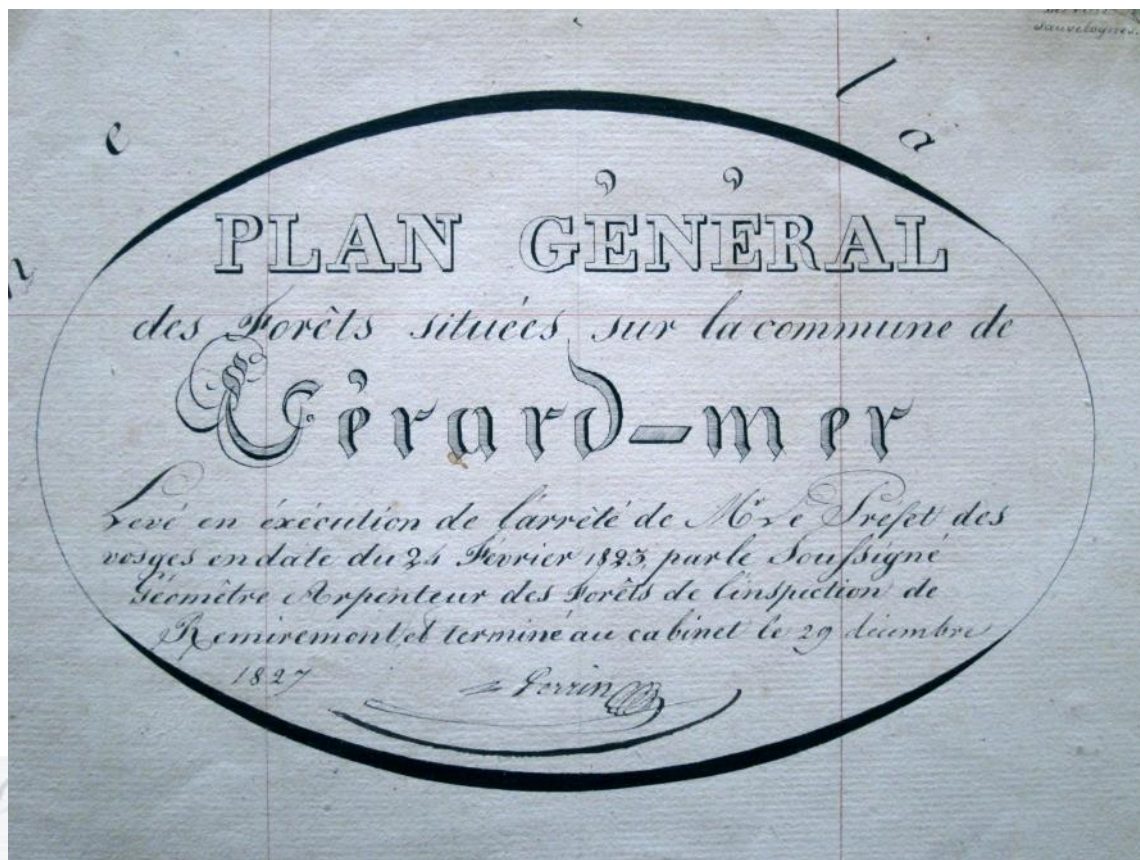 sauvelognes.
e l a
n
PLAN GÉNÉRAL
des Forêts situées sur la commune de
Gérard-mer
Levé en éxécution de l'arrêté de Mr Le Préfet des
vosges en date du 24 Février 1823, par le Soussigné
Géomètre Arpenteur des Forêts de l'inspection de
Remiremont, et terminé au cabinet le 29 décembre
1827 Perrin